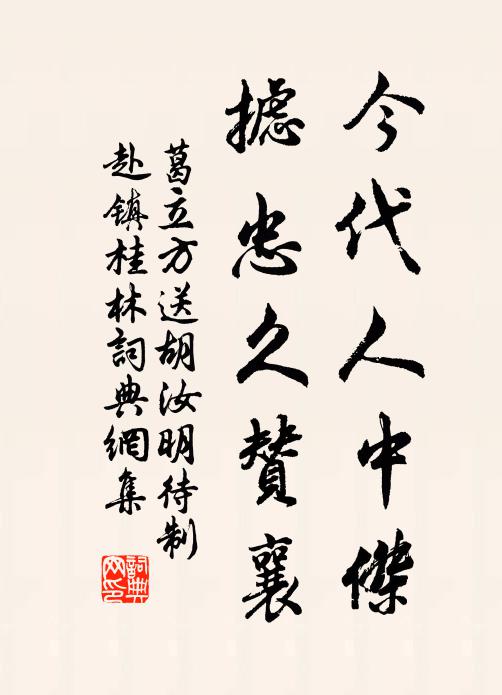 今代人中傑
攄忠久贊襄
葛立方送胡汝明待制
赴鎮桂林詞典網集
詞典網印